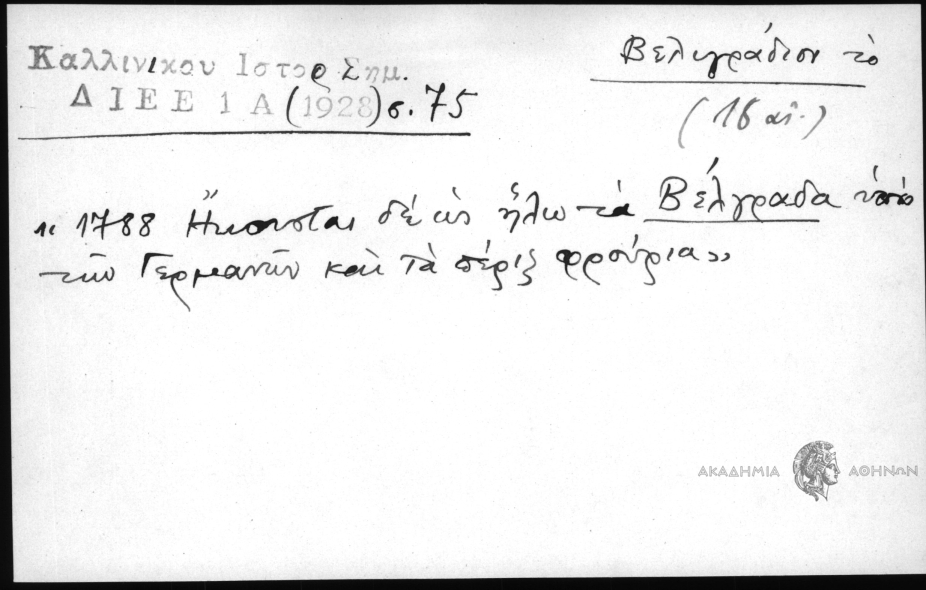 Καλλινίκου Ιστορ Σημ.
ΔΙΕΕ 1 Α (1928) σ. 75
Βελιγράδιον τὸ
(18 αἰ.)
« 1788 Ἤκουσται δέ ὡς ἥλω τὰ Βέλγραδα ὑπὸ
τῶν Γερμανῶν καὶ τὰ πέριξ φρούρια»
ΑΚΑΔΗΜΙΑ ΑΘΗΝΩΝ